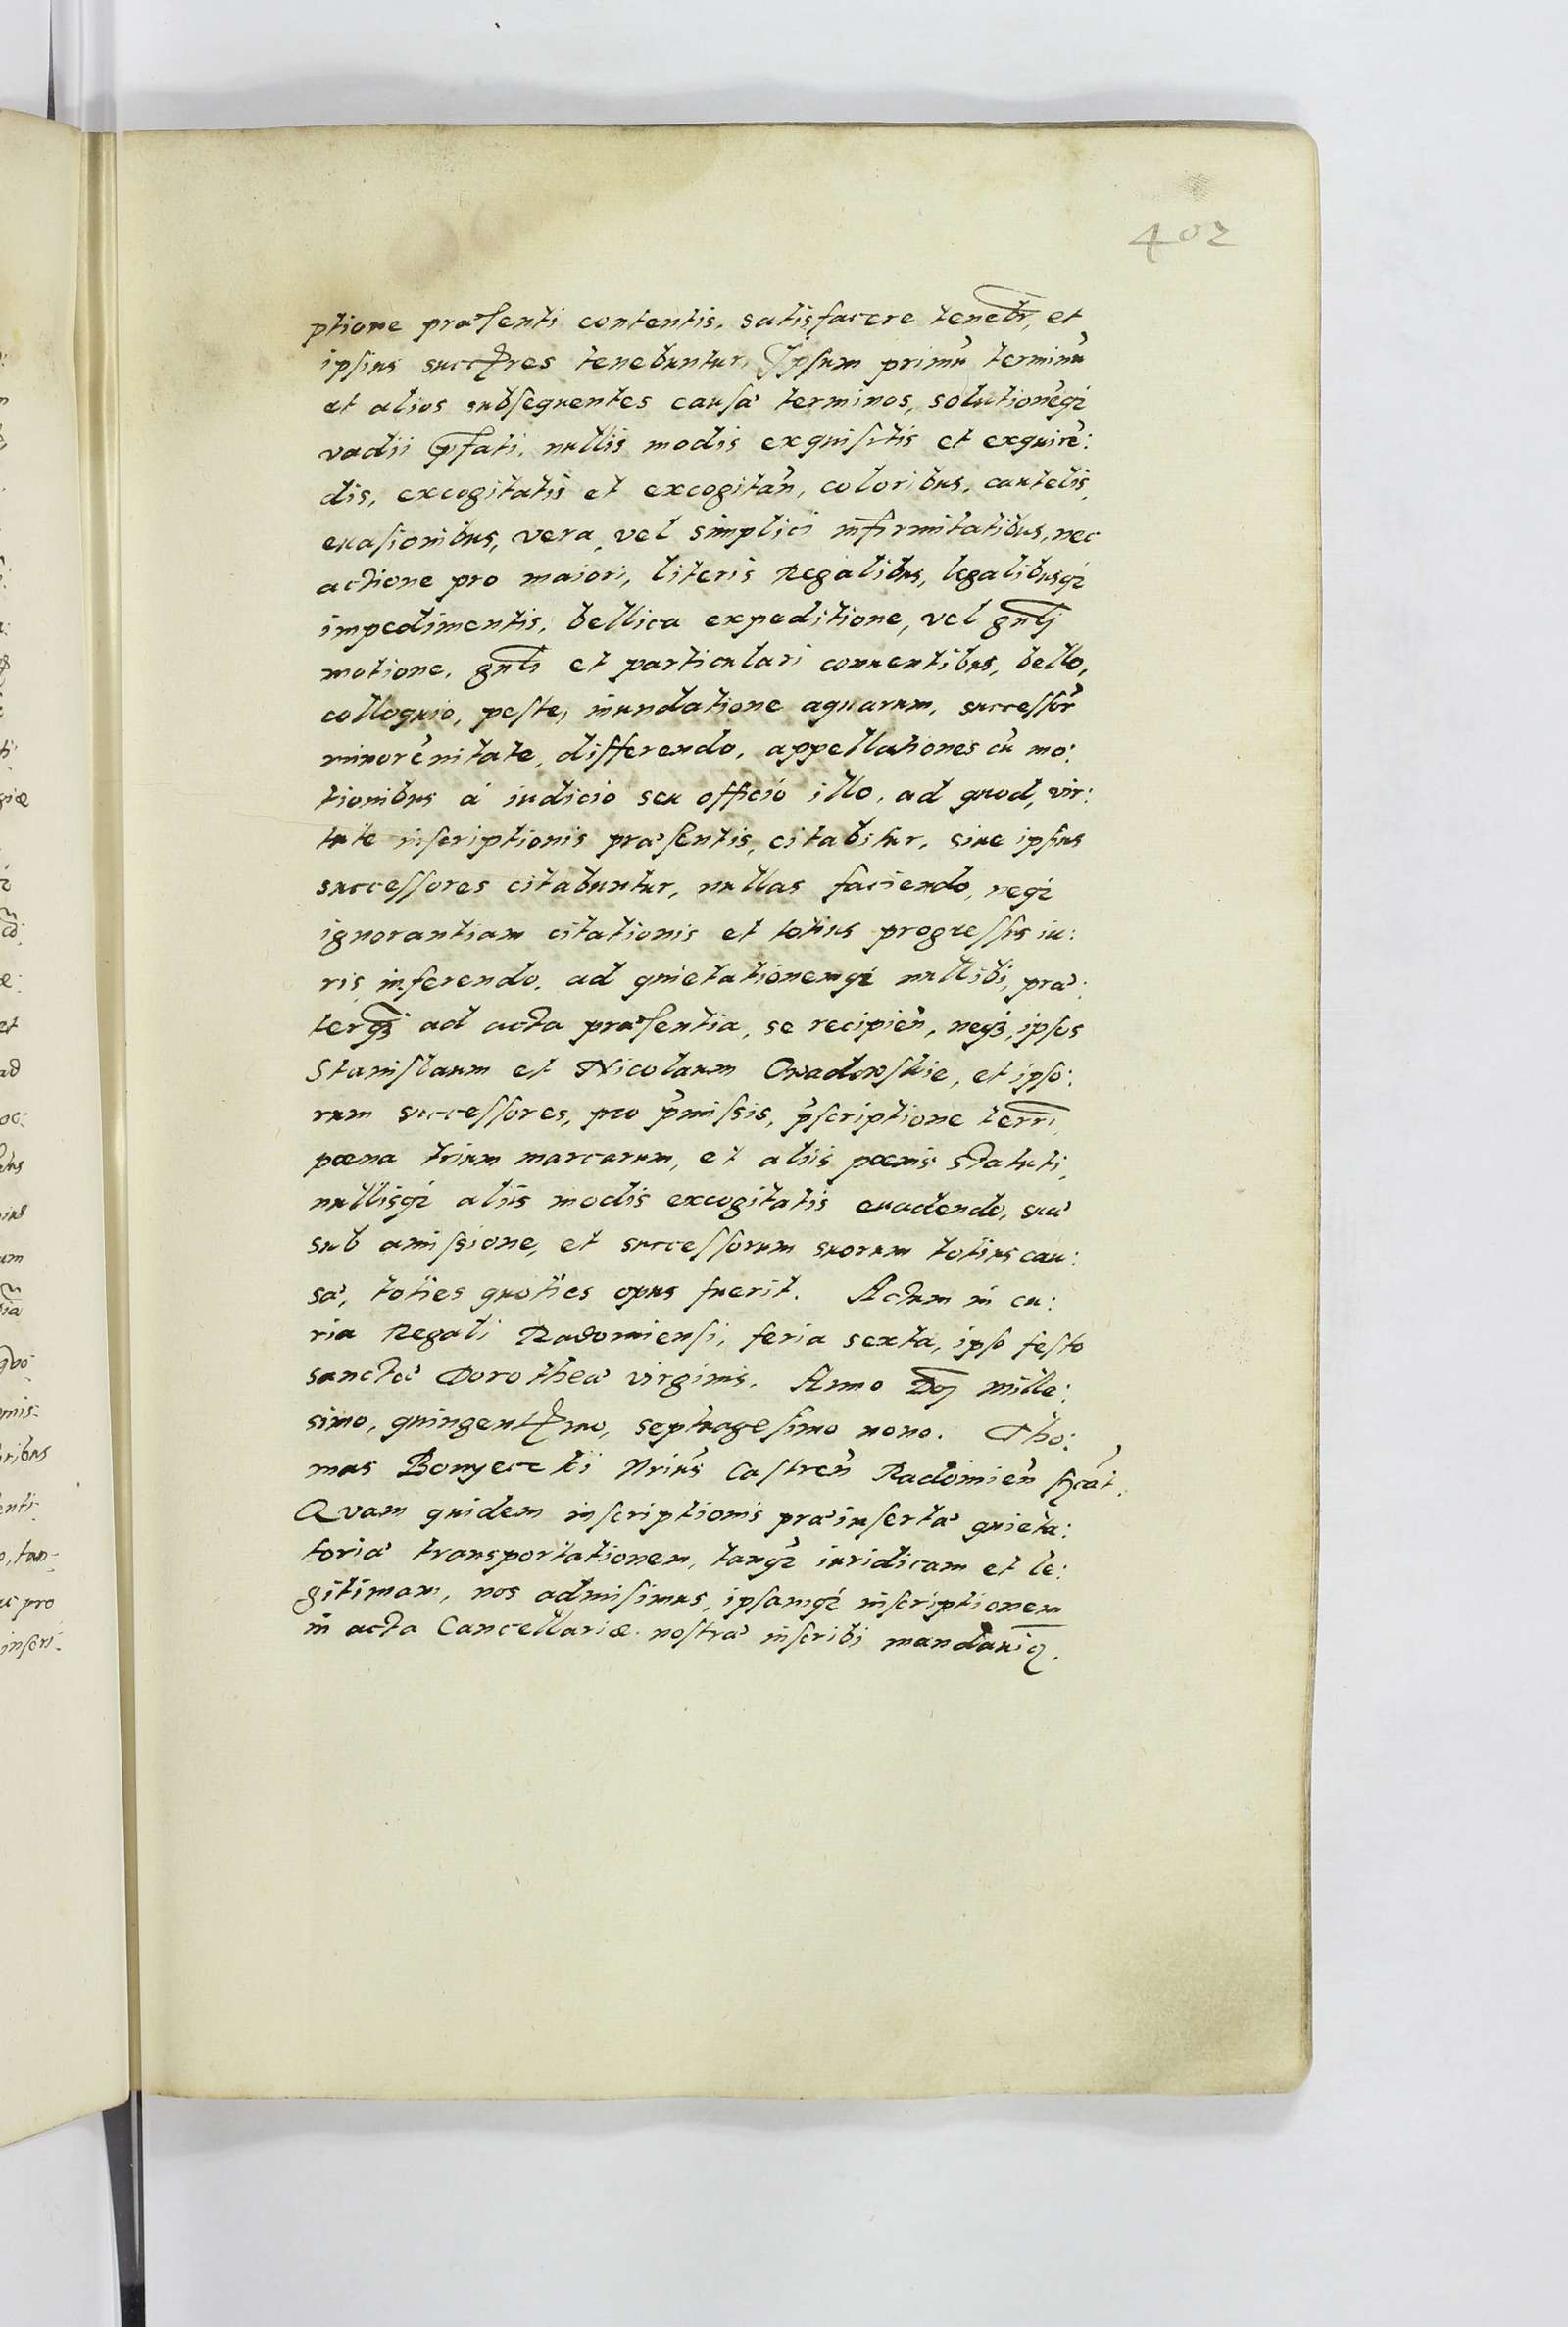 402
ptione præsenti contentis, satisfacere teneb̃r, et
ipsius succ̃res tenebuntur. Ipsum primũ terminũ
et alios subsequentes causæ terminos, solutionẽqꝫ
vadii p̃fati, nullis modis exquisitis et exquirẽ:
dis, excogitatis et excogitañ, coloribus, cautelis,
euasionibus, vera, vel simplici infirmitatibus, nec
actione pro maiori, literis Regalibus, legalibusqꝫ
impedimentis, bellica expeditione, vel gñlj
motione, gñli et particulari conuentibus, bello,
colloquio, peste, inundatione aquarum, successor̃
minorẽnitate, differendo, appellationes cũ mo:
tionibus á iudicio seu officio illo, ad quod, vir:
tute inscriptionis præsentis, citabitur, siue ipsius
successores citabuntur, nullas faciendo, neqꝫ
ignorantiam citationis et totius progressus iu:
ris inferendo, ad quietationemqꝫ nullibi, præ:
terqꝫ ad acta præsentia, se recipieñ, neqꝫ, ipsos
Stanislaum et Nicolaum Owadowskie, et ipso:
rum successores, pro p̃missis, p̃scriptione terrĩ,
pœna trium marcarum, et aliis pœnis Statuti,
nullisqꝫ aliis modis excogitatis euadendo, suæ
sub amissione, et successorum suorum totius cau:
sæ, toties quoties opus fuerit. Actum in cu:
ria Regali Radomiensi, feria sexta, ipso festo
sanctæ Dorotheæ virginis. Anno Dñj Mille:
simo, quingent̃mo, septuagesimo nono. Tho:
mas Bonyecki Nriũs Castreñ Radomieñ
Quam quidem inscriptionis præinsertæ quieta:
toriæ transportationem, tanqꝫ iuridicam et le:
gitimam, nos admisimus, ipsamqꝫ inscriptionem
in acta Cancellariæ nostræ inscribi mandauiꝫ.